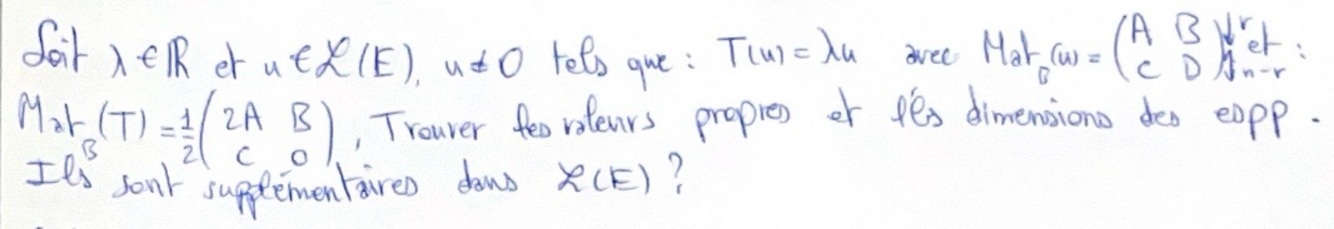 Soit λ ∈ ℝ et u ∈ ℒ(E), u ≠ 0 tels que : T(u) = λu avec Mat_B(u) = (A B ; C D) ↕r ↕n-r et :
Mat_B(T) = 1/2 (2A B ; C 0), Trouver les valeurs propres et les dimensions des espp.
Ils sont supplémentaires dans ℒ(E) ?